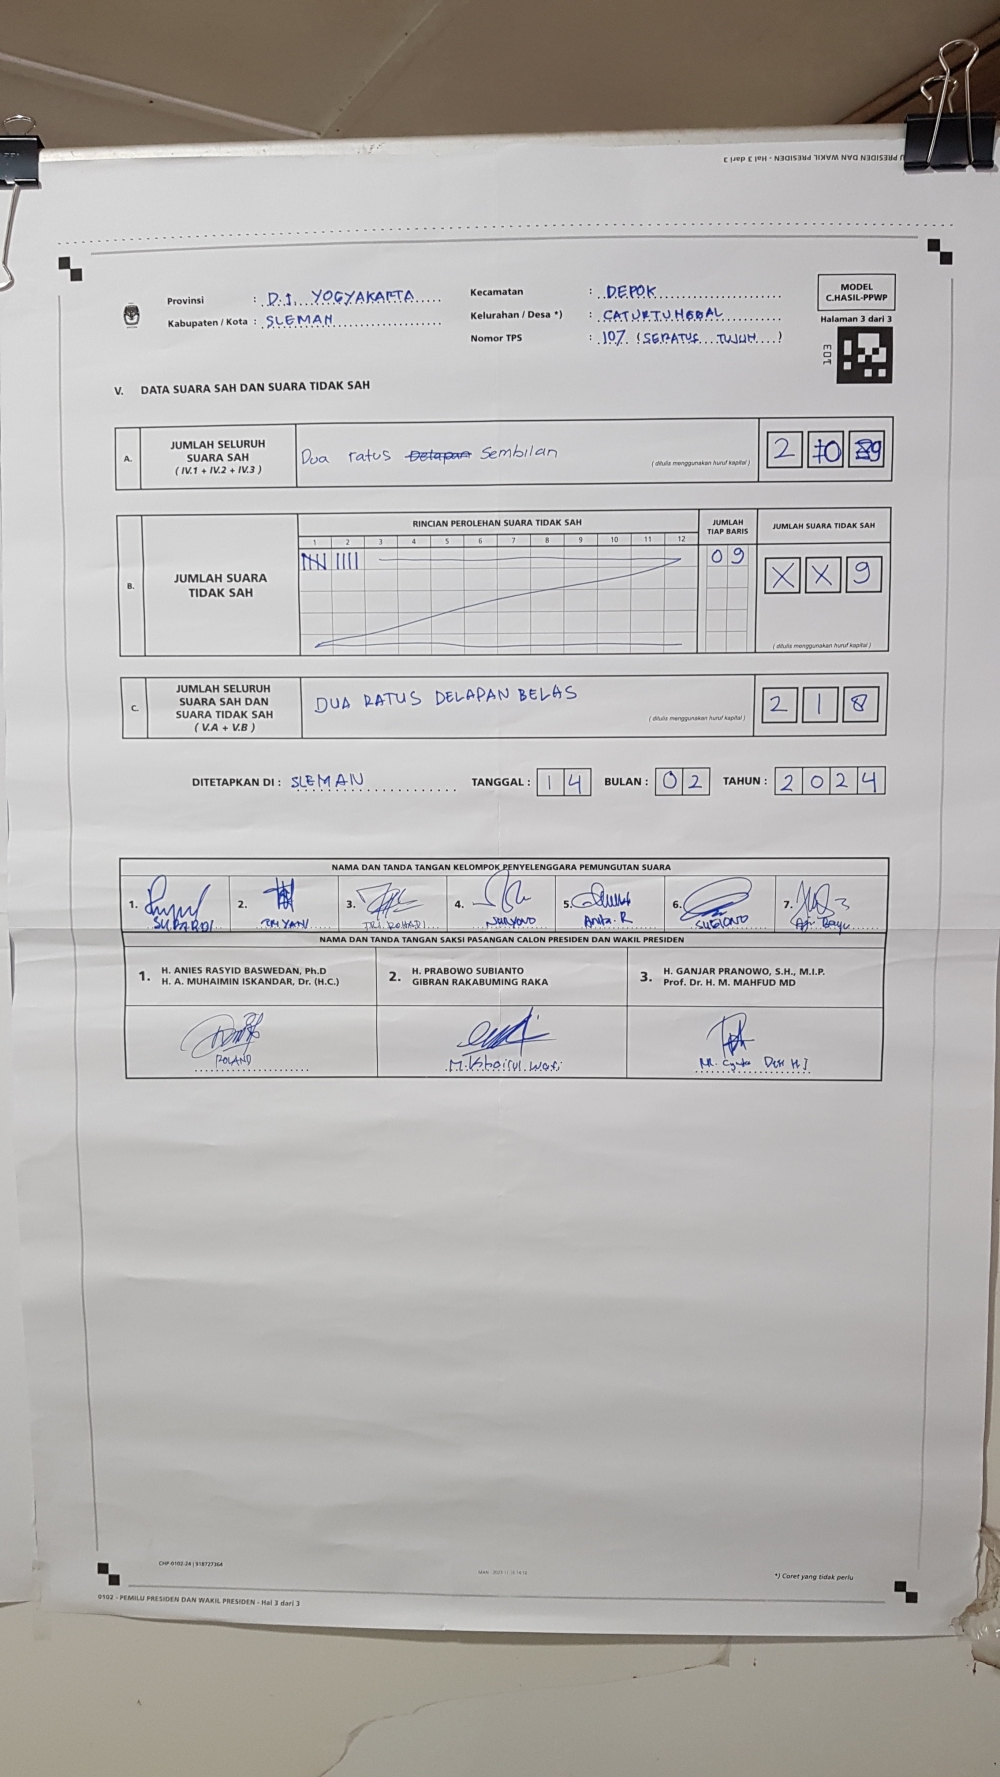 U PRESIDEN DAN WAKIL PRESIDEN - Hal 3 dari 3
Provinsi : D.I. YOGYAKARTA
Kabupaten / Kota : SLEMAN
Kecamatan : DEPOK
Kelurahan / Desa *) : CATURTUNGGAL
Nomor TPS : 107 (SERATUS TUJUH)
MODEL
C.HASIL-PPWP
Halaman 3 dari 3
V. DATA SUARA SAH DAN SUARA TIDAK SAH
A. JUMLAH SELURUH
SUARA SAH
( IV.1 + IV.2 + IV.3 )
Dua ratus Delapan Sembilan
( ditulis menggunakan huruf kapital )
2 0 9
B. JUMLAH SUARA
TIDAK SAH
RINCIAN PEROLEHAN SUARA TIDAK SAH
1 2 3 4 5 6 7 8 9 10 11 12
JUMLAH
TIAP BARIS
0 9
JUMLAH SUARA TIDAK SAH
X X 9
( ditulis menggunakan huruf kapital )
C. JUMLAH SELURUH
SUARA SAH DAN
SUARA TIDAK SAH
( V.A + V.B )
DUA RATUS DELAPAN BELAS
( ditulis menggunakan huruf kapital )
2 1 8
DITETAPKAN DI : SLEMAN TANGGAL : 14 BULAN : 02 TAHUN : 2024
NAMA DAN TANDA TANGAN KELOMPOK PENYELENGGARA PEMUNGUTAN SUARA
1. SUPARDI 2. TRIYANI 3. TRI ROHADI 4. NURYONO 5. Anita. R 6. SUGIONO 7. Aji Bayu
NAMA DAN TANDA TANGAN SAKSI PASANGAN CALON PRESIDEN DAN WAKIL PRESIDEN
1. H. ANIES RASYID BASWEDAN, Ph.D
H. A. MUHAIMIN ISKANDAR, Dr. (H.C.)
2. H. PRABOWO SUBIANTO
GIBRAN RAKABUMING RAKA
3. H. GANJAR PRANOWO, S.H., M.I.P.
Prof. Dr. H. M. MAHFUD MD
ROLAND
M. Khoirul
CHP-0102-24 | 918727364
*) Coret yang tidak perlu
0102 - PEMILU PRESIDEN DAN WAKIL PRESIDEN - Hal 3 dari 3